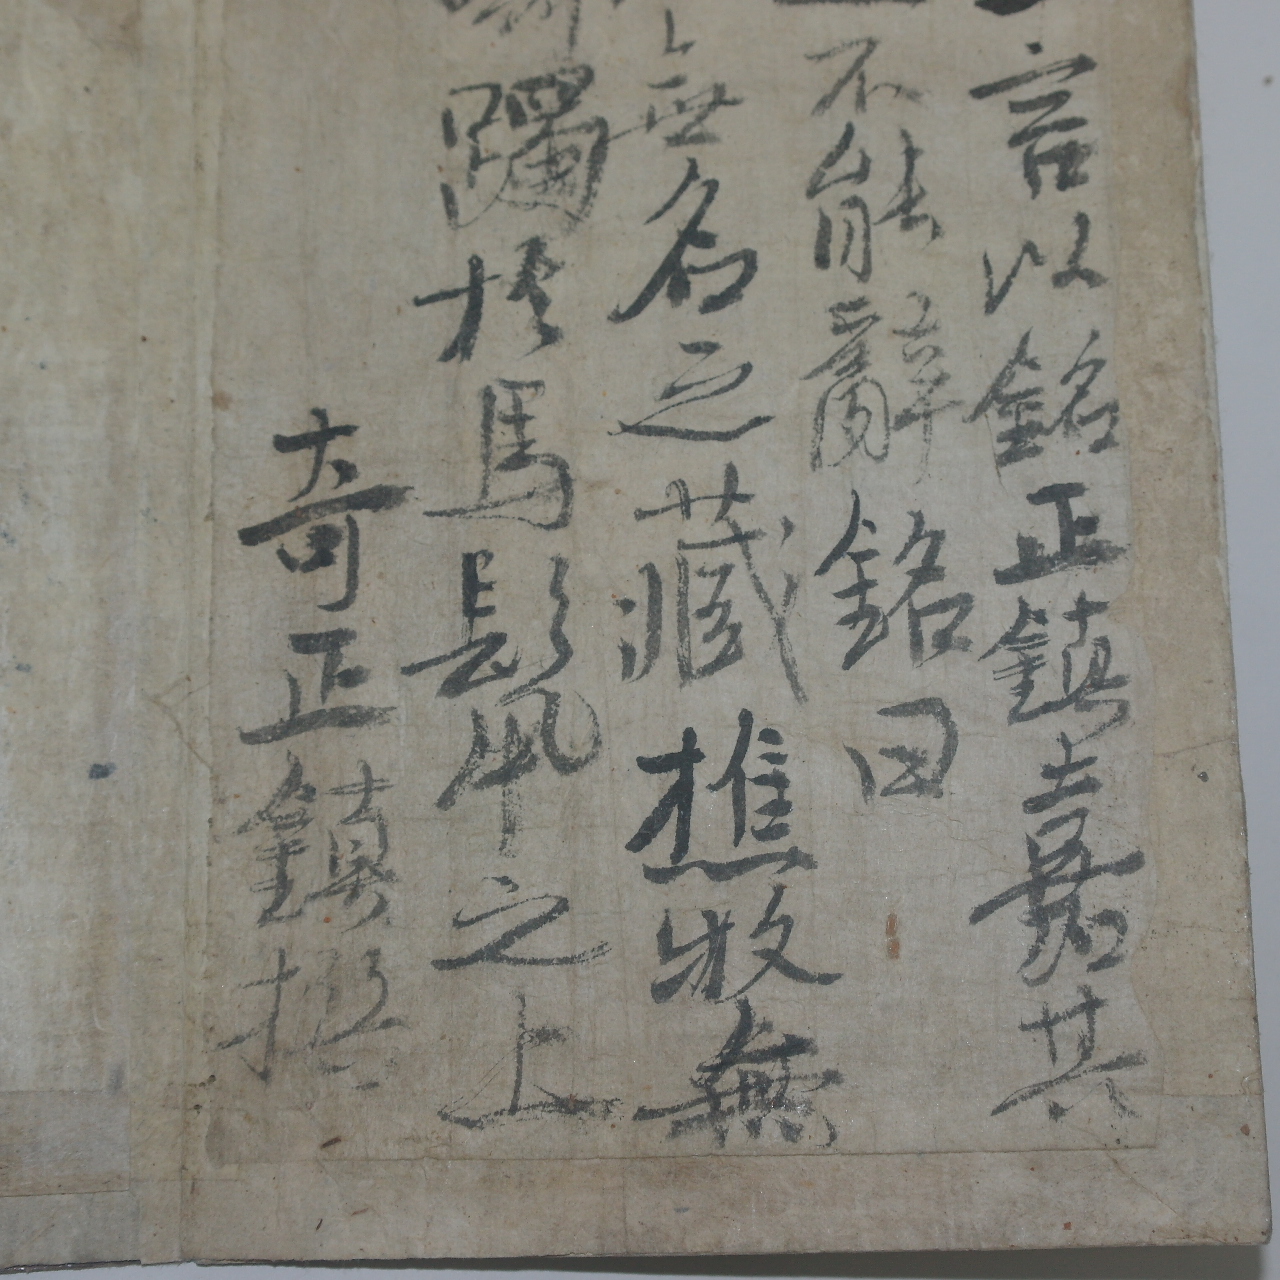 言以銘正鎭嘉其
不能辭銘曰
無名之藏樵牧無
躅於馬鬣之上
奇正鎭撰